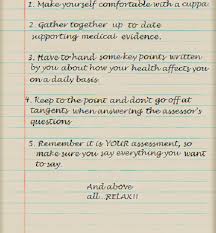 1. Make yourself comfortable with a cuppa.
2. Gather together up to date
supporting medical evidence.
3. Have to hand some key points written
by you about how your health affects you
on a daily basis.
4. Keep to the point and don't go off at
tangents when answering the assessor's
questions
5. Remember it is YOUR assessment, so
make sure you say everything you want
to say.
And above
all...RELAX!!